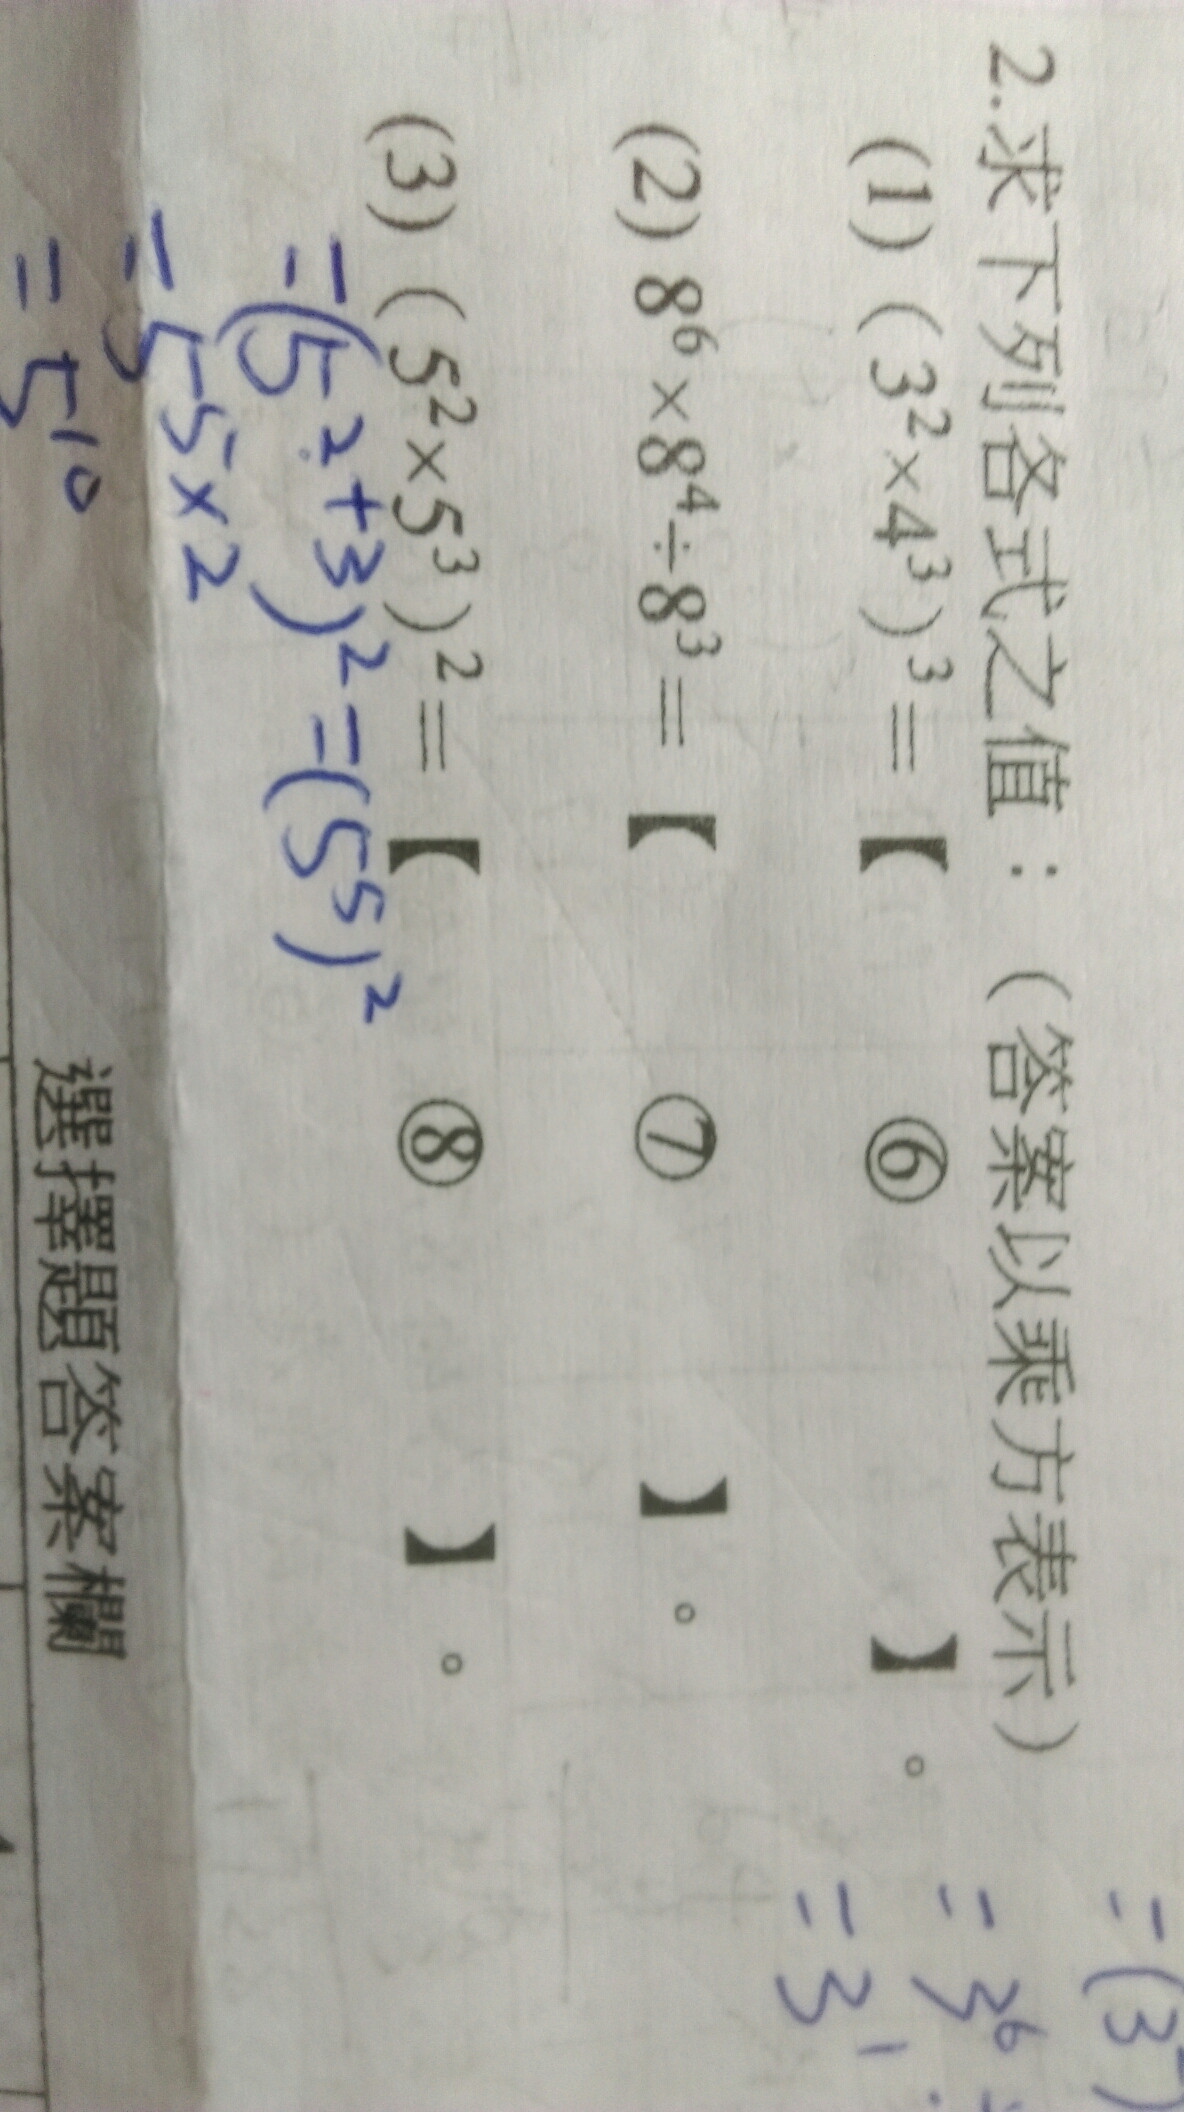 2.求下列各式之值：（答案以乘方表示）
(1) (3²×4³)³=【 ⑥ 】。
(2) 8⁶×8⁴÷8³=【 ⑦ 】。
(3) (5²×5³)²=【 ⑧ 】。
=(5²⁺³)²=(5⁵)²
=5⁵ˣ²
=5¹⁰
選擇題答案欄
=(3
=3⁶
=3¹